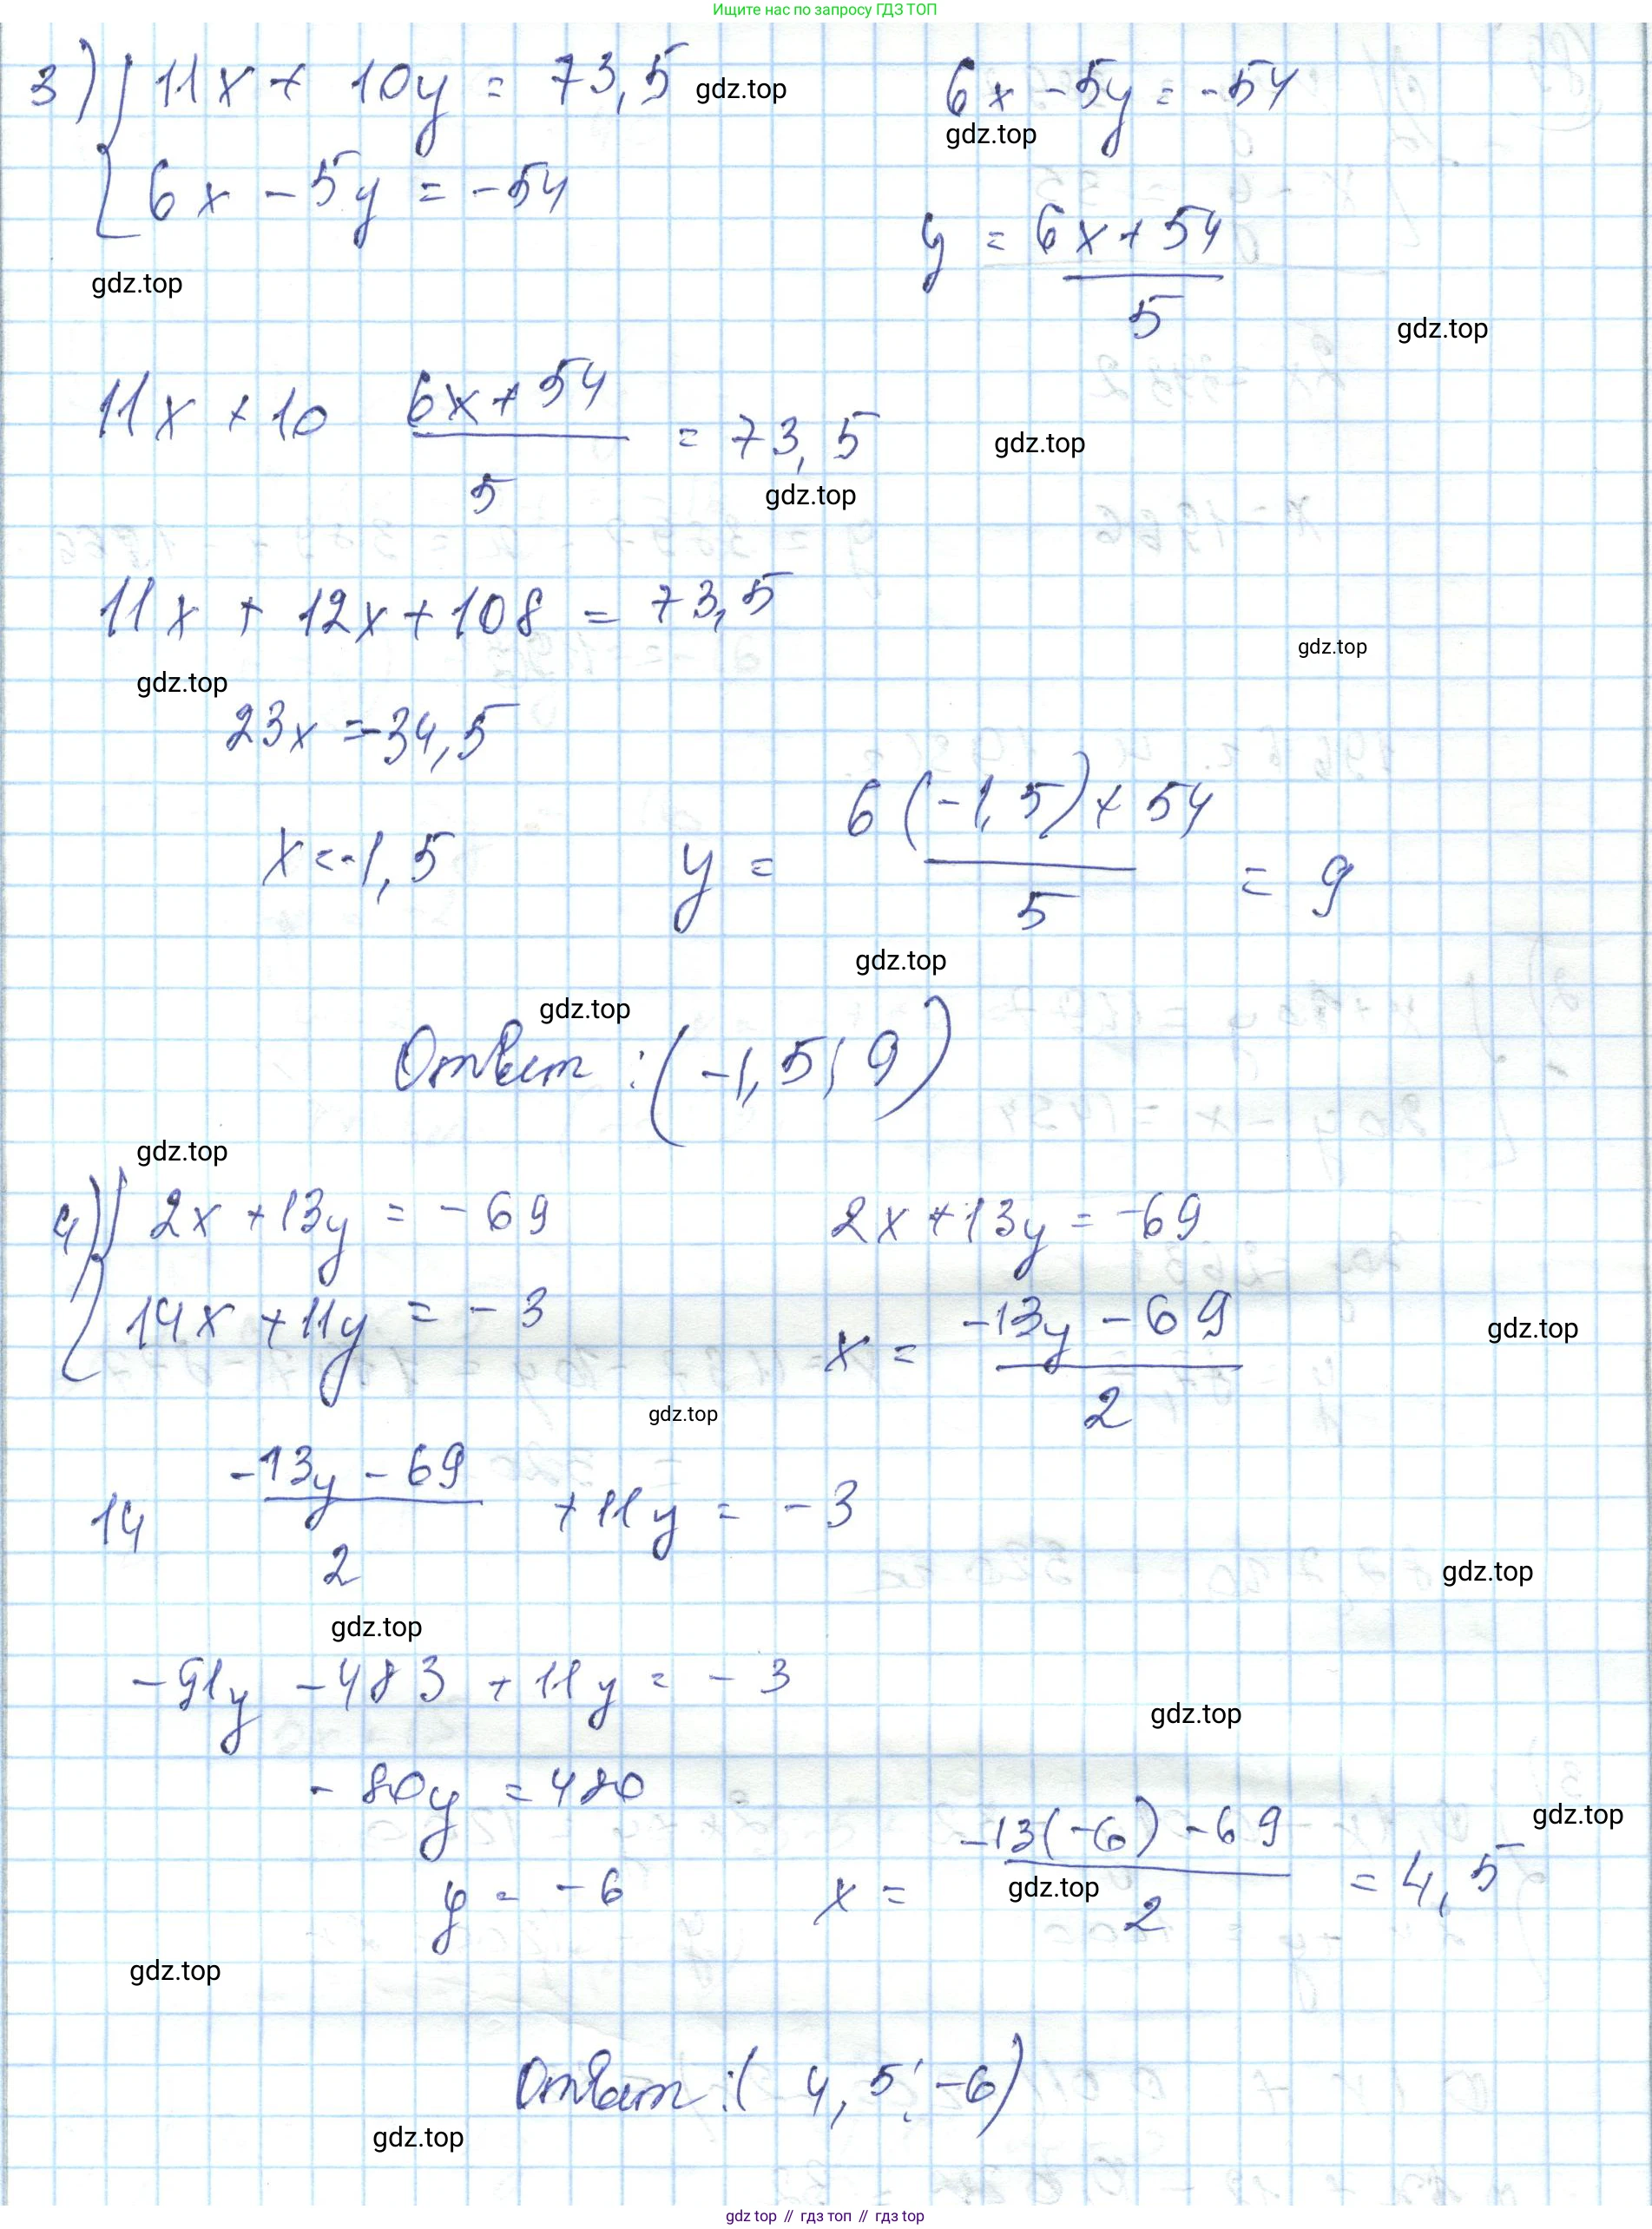 Ищите нас по запросу ГДЗ ТОП
3) { 11x + 10y = 73,5 gdz.top 6x - 5y = -54
gdz.top
6x - 5y = -54
y = (6x + 54)/5
gdz.top
gdz.top
11x + 10 (6x + 54)/5 = 73,5 gdz.top
gdz.top
11x + 12x + 108 = 73,5
gdz.top
gdz.top
23x = -34,5
x = -1,5 y = (6(-1,5) + 54)/5 = 9
gdz.top
gdz.top
Ответ: (-1,5; 9)
gdz.top
4) { 2x + 13y = -69 2x + 13y = -69
14x + 11y = -3 x = (-13y - 69)/2 gdz.top
gdz.top
14 (-13y - 69)/2 + 11y = -3
gdz.top
gdz.top
-91y - 483 + 11y = -3
gdz.top
-80y = 480
gdz.top
y = -6 x = (-13(-6) - 69)/2 = 4,5
gdz.top
gdz.top
Ответ: (4,5; -6)
gdz.top
gdz top // гдз топ // гдз top